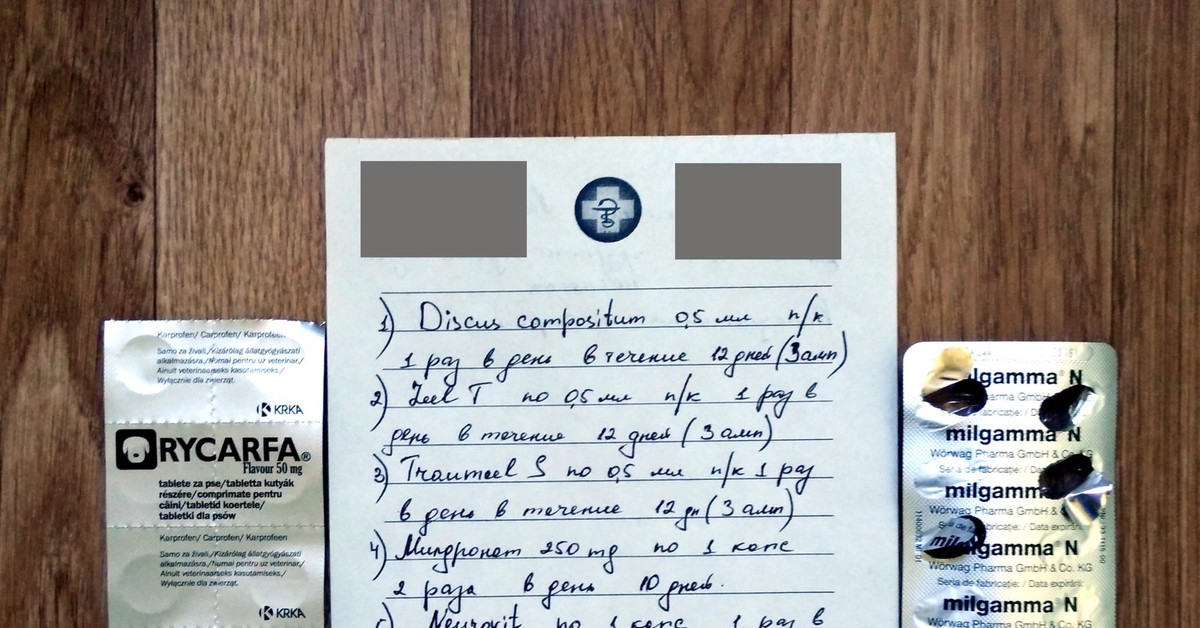 Karprofen/ Carprofen/ Karprofeen
Samo za živali./Kizárólag állatgyógyászati
alkalmazásra./Numai pentru uz veterinar./
Ainult veterinaarseks kasutamiseks./
Wyłącznie dla zwierząt.
KRKA
RYCARFA®
Flavour 50 mg
tablete za pse/tabletta kutyák
részére/comprimate pentru
câini/tabletid koertele/
tabletki dla psów
Karprofen/ Carprofen/ Karprofeen
Samo za živali./Kizárólag állatgyógyászati
alkalmazásra./Numai pentru uz veterinar./
Ainult veterinaarseks kasutamiseks./
Wyłącznie dla zwierząt.
KRKA
1) Discus compositum 0,5 мл п/к
1 раз в день в течение 12 дней (3 амп)
2) Zeel T по 0,5 мл п/к 1 раз в
день в течение 12 дней (3 амп)
3) Traumeel S по 0,5 мл п/к 1 раз
в день в течение 12 дн (3 амп)
4) Милдронат 250 mg по 1 капс
2 раза в день 10 дней.
Neurovit по 1 капс 1 раз в
lgamma® N
arma GmbH
fabricație: / D
milgamma® N
Wörwag Pharma GmbH & Co. KG
Seria de fabricație: / Data
milgamm
Wörwag Pharma GmbH &
Data expirării:
mil gamma® N
Wörwag Pharma GmbH & Co. KG
Seria de fabricație: / Data expirării:
milgamma® N
Wörwag Pharma GmbH & Co. KG